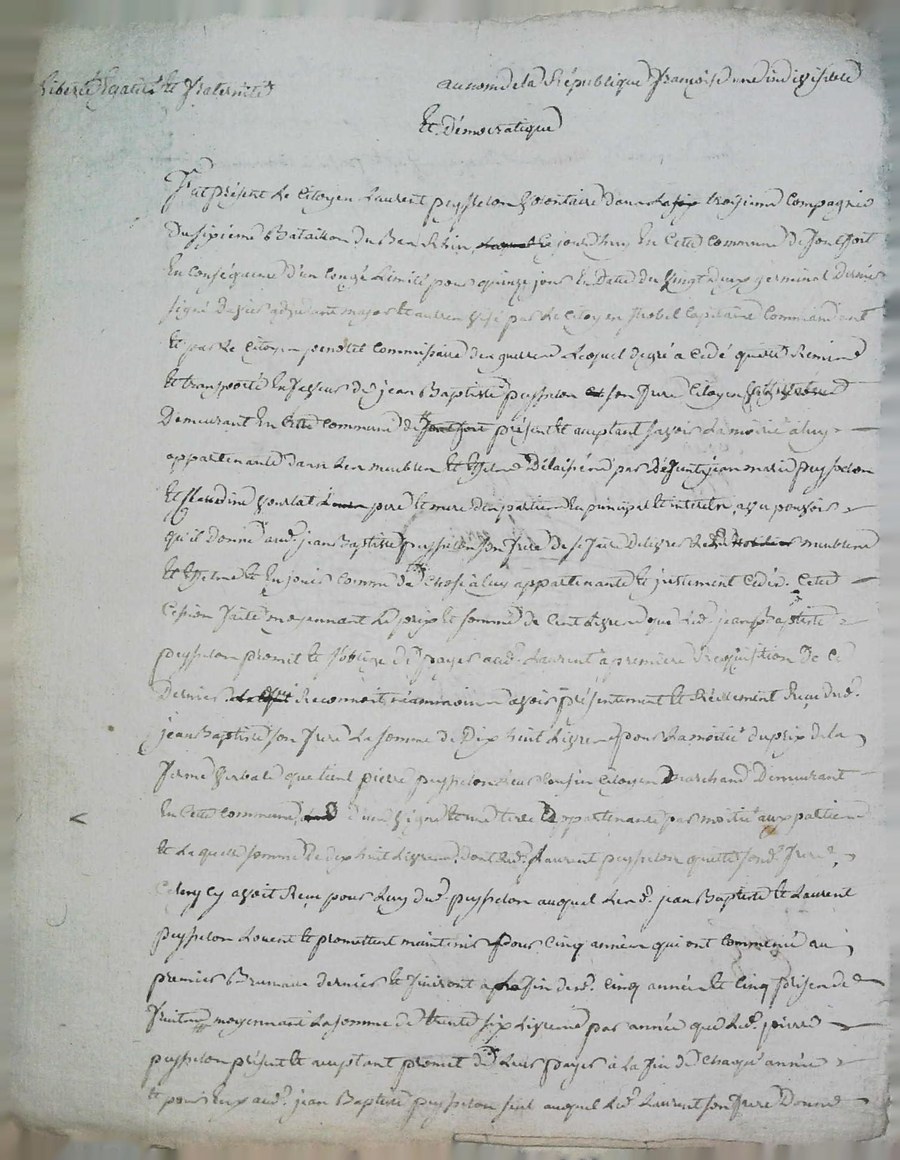 Liberté Egalité Et fraternité
au nom de la République françoise une indivisible
Et Démocratique
fut présent Le Citoyen Laurent peysselon volontaire dans La troisieme Compagnie
Du sixième Bataillon du Bas Rhin ce jourdhuy En Cette Commune de
En Conséquence d'un Congé Limité pour quinze jours En Datte du vingt deux germinal Dernier
signé adjudant major Et autres visé par Le Citoyen Capitaine Commandant
Et par Le Citoyen Commissaire des guerres Lequel de gré a Cédé quitté Remis
Et transporté En faveur de jean Baptiste peysselon son frere Citoyen
Demeurant En Cette Commune de présent Et acceptant savoir La moitié à luy
appartenante dans Les meubles Et Effets Délaissés par Défunts jean marie peysselon
Et Claudine pere Et mere des parties En principal Et intérêts, avec pouvoir
qu'il Donne aud. jean Baptiste peysselon son frere de se faire Delivrer Lesd. meubles
Et Effets Et En jouir Comme de Chose à luy appartenante Et justement Cédée. Cette
Cession faite moyennant Le prix Et somme de Cent Livres que Led. jean Baptiste
peysselon promet Et s'oblige de payer aud. Laurent à première Requisition De Ce
Dernier Reconnoit néanmoins avoir présentement Et Réellement Reçu dud.
jean Baptiste son frere La somme de Dix huit Livres pour La moitié du prix de la
ferme verbale que tient pierre peysselon Leur Cousin Citoyen Marchand Demeurant
En Cette Commune, d'une vigne Et une terre appartenante par moitié aux parties
Et Laquelle somme de dix huit Livres, dont Led. Laurent peysselon quitte sond. frere,
Celuy Cy avoit Reçu pour Luy dud. peysselon auquel Lesd. jean Baptiste Et Laurent
peysselon Louent Et promettent maintenir pour Cinq années qui ont Commencé au
premier Brumaire dernier Et finiront à La fin desd. Cinq années Et Cinq prises de
fruits moyennant La somme de trente six Livres par année que Led. pierre
peysselon présent Et acceptant promet de Leur payer à La fin de Chaque année
Et pour Eux aud. jean Baptiste peysselon seul auquel Led. Laurent son frere Donne